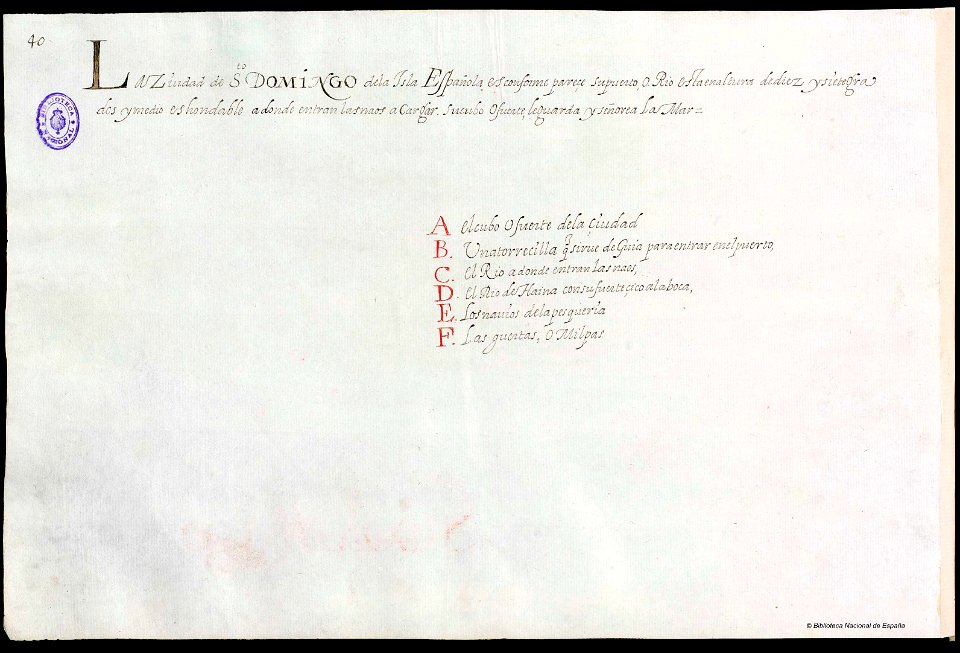 40
LA Ziudad de Sto DOMINGO de la Isla Española, es conforme parece su puerto o Rio esta en altura de diez y siete gra
dos y medio es hondable a donde entran las naos a Cargar. su cubo o fuerte, le guarda y señorea La Mar =
BIBLIOTECA NACIONAL
A El cubo o fuerte de la çiudad
B. Una torrecilla q sirue de Guia para entrar en el puerto,
C. El Rio a donde entran las naos,
D. El Rio de Haina con su fuerteçico a la boca,
E. Los nauios de la pesqueria
F. Las guertas, o Milpas
© Biblioteca Nacional de España